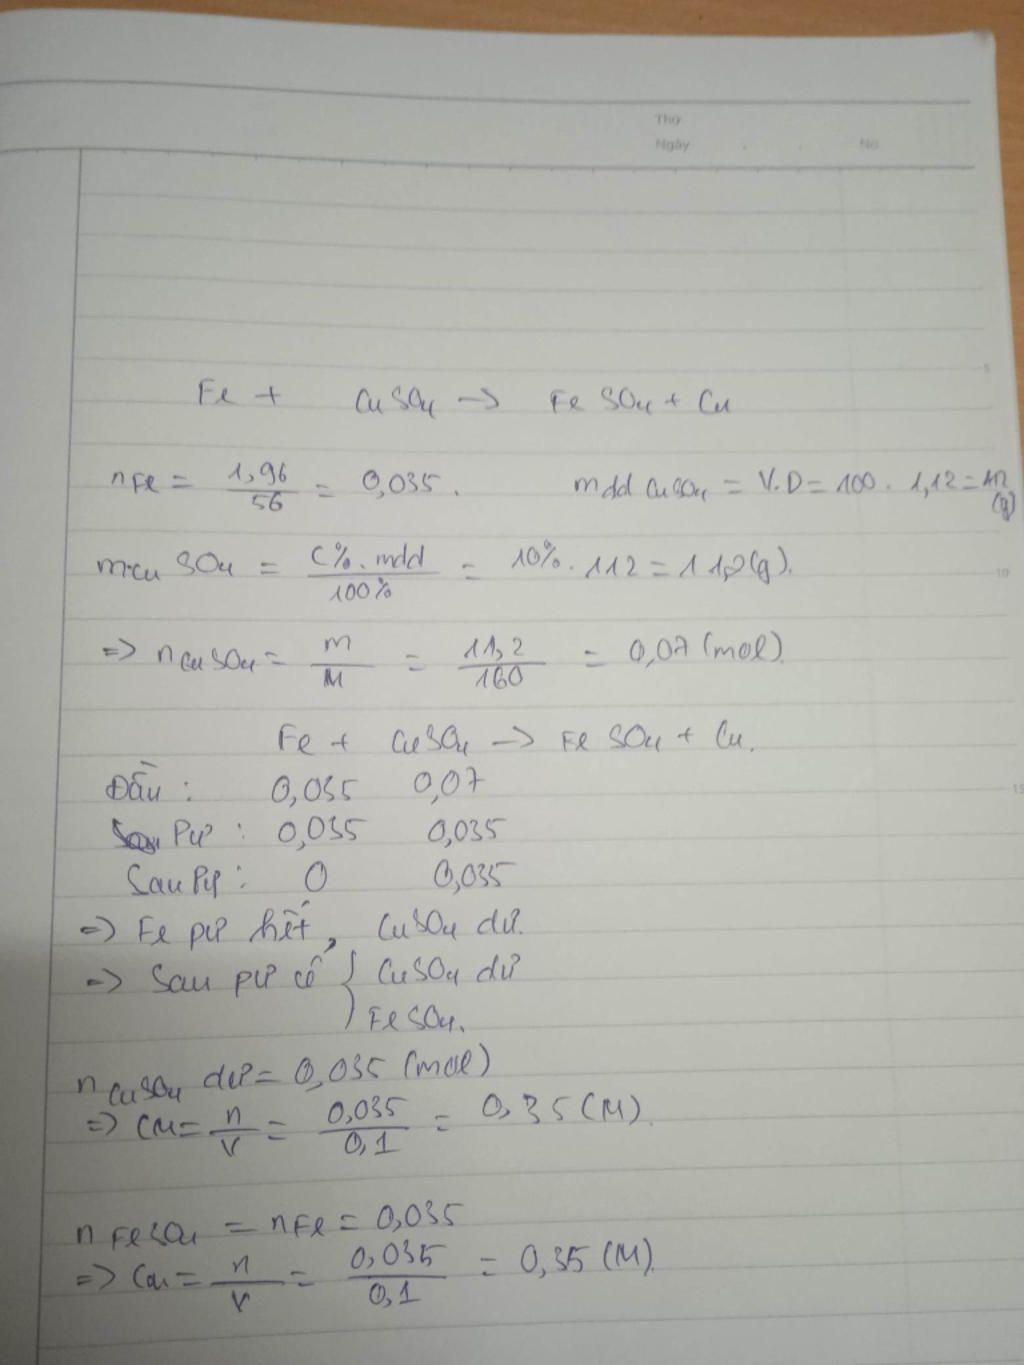 Thứ
Ngày . . No
Fe + CuSO4 -> FeSO4 + Cu
5
nFe = 1,96/56 = 0,035. mdd CuSO4 = V.D = 100 . 1,12 = 112 (g)
mCuSO4 = C%.mdd/100% = 10%.112 = 11,2(g).
10
=> nCuSO4 = m/M = 11,2/160 = 0,07 (mol).
Fe + CuSO4 -> FeSO4 + Cu.
Đầu : 0,035 0,07
15
Pư : 0,035 0,035
Sau Pư : 0 0,035
=> Fe pư hết, CuSO4 dư.
=> Sau pư có { CuSO4 dư
FeSO4.
nCuSO4 dư = 0,035 (mol)
=> CM = n/V = 0,035/0,1 = 0,35 (M).
nFeSO4 = nFe = 0,035
=> CM = n/V = 0,035/0,1 = 0,35 (M).